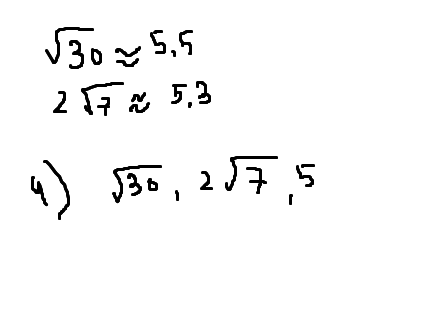 √30 ≈ 5,5
2√7 ≈ 5,3
4) √30, 2√7, 5